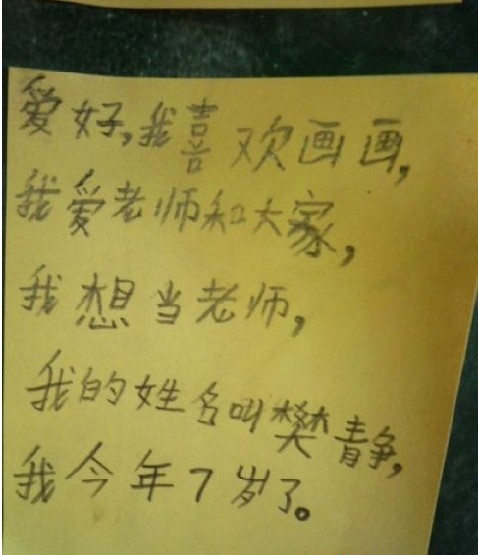 爱好,我喜欢画画,
我爱老师和大家,
我想当老师,
我的姓名叫樊静,
我今年7岁了。